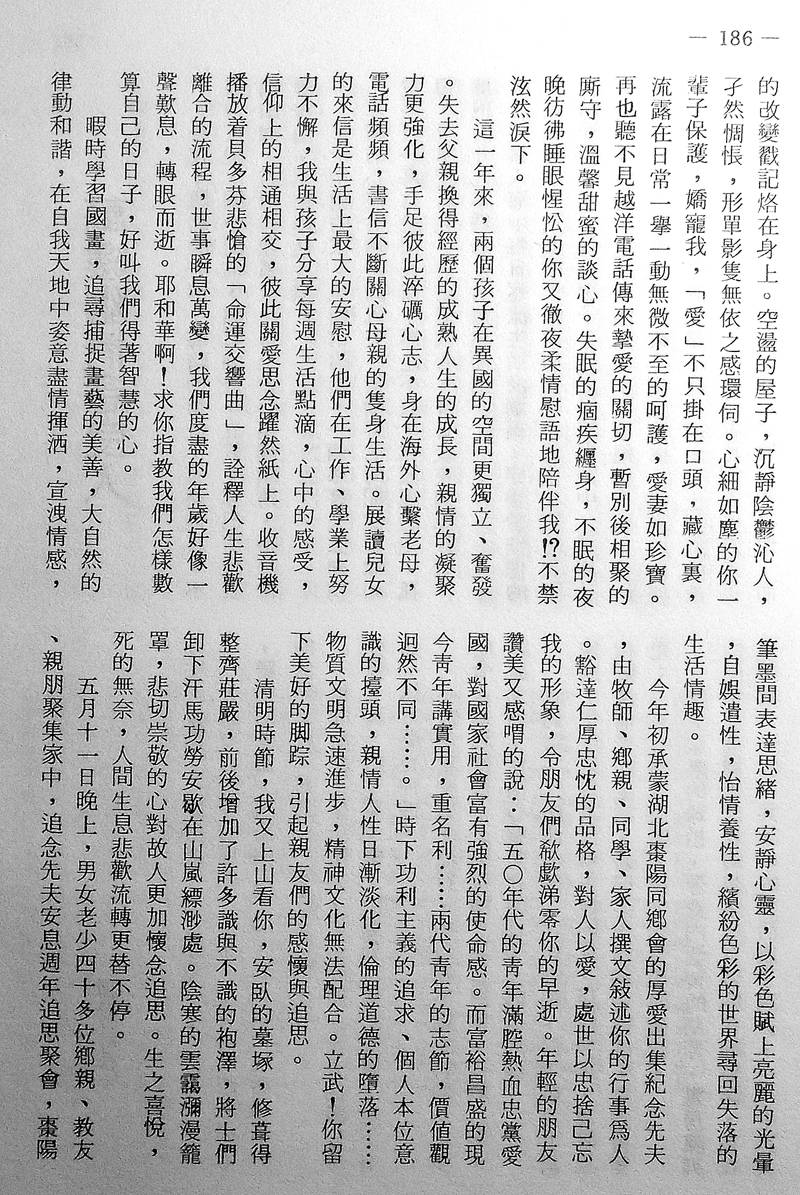 — 186 —
的改變戳記烙在身上。空盪的屋子，沉靜陰鬱沁人，
孑然惆悵，形單影隻無依之感環伺。心細如塵的你一
輩子保護，嬌寵我，「愛」不只掛在口頭，藏心裏，
流露在日常一舉一動無微不至的呵護，愛妻如珍寶。
再也聽不見越洋電話傳來摯愛的關切，暫別後相聚的
廝守，溫馨甜蜜的談心。失眠的痼疾纏身，不眠的夜
晚彷彿睡眼惺忪的你又徹夜柔情慰語地陪伴我!?不禁
泫然淚下。
這一年來，兩個孩子在異國的空間更獨立、奮發
。失去父親換得經歷的成熟人生的成長，親情的凝聚
力更強化，手足彼此淬礪心志，身在海外心繫老母，
電話頻頻，書信不斷關心母親的隻身生活。展讀兒女
的來信是生活上最大的安慰，他們在工作、學業上努
力不懈，我與孩子分享每週生活點滴，心中的感受，
信仰上的相通相交，彼此關愛思念躍然紙上。收音機
播放着貝多芬悲愴的「命運交響曲」，詮釋人生悲歡
離合的流程，世事瞬息萬變，我們度盡的年歲好像一
聲歎息，轉眼而逝。耶和華啊！求你指教我們怎樣數
算自己的日子，好叫我們得著智慧的心。
暇時學習國畫，追尋捕捉畫藝的美善，大自然的
律動和諧，在自我天地中姿意盡情揮洒，宣洩情感，
筆墨間表達思緒，安靜心靈，以彩色賦上亮麗的光暈
，自娛遣性，怡情養性，繽紛色彩的世界尋回失落的
生活情趣。
今年初承蒙湖北棗陽同鄉會的厚愛出集紀念先夫
，由牧師、鄉親、同學、家人撰文敍述你的行事爲人
。豁達仁厚忠忱的品格，對人以愛，處世以忠捨己忘
我的形象，令朋友們欷歔涕零你的早逝。年輕的朋友
讚美又感喟的說：「五〇年代的青年滿腔熱血忠黨愛
國，對國家社會富有強烈的使命感。而富裕昌盛的現
今青年講實用，重名利……兩代青年的志節，價值觀
迥然不同……。」時下功利主義的追求、個人本位意
識的擡頭，親情人性日漸淡化，倫理道德的墮落……
物質文明急速進步，精神文化無法配合。立武！你留
下美好的脚踪，引起親友們的感懷與追思。
清明時節，我又上山看你，安臥的墓塚，修葺得
整齊莊嚴，前後增加了許多識與不識的袍澤，將士們
卸下汗馬功勞安歇在山嵐縹渺處。陰寒的雲靄瀰漫籠
罩，悲切崇敬的心對故人更加懷念追思。生之喜悅，
死的無奈，人間生息悲歡流轉更替不停。
五月十一日晚上，男女老少四十多位鄉親、教友
、親朋聚集家中，追念先夫安息週年追思聚會，棗陽